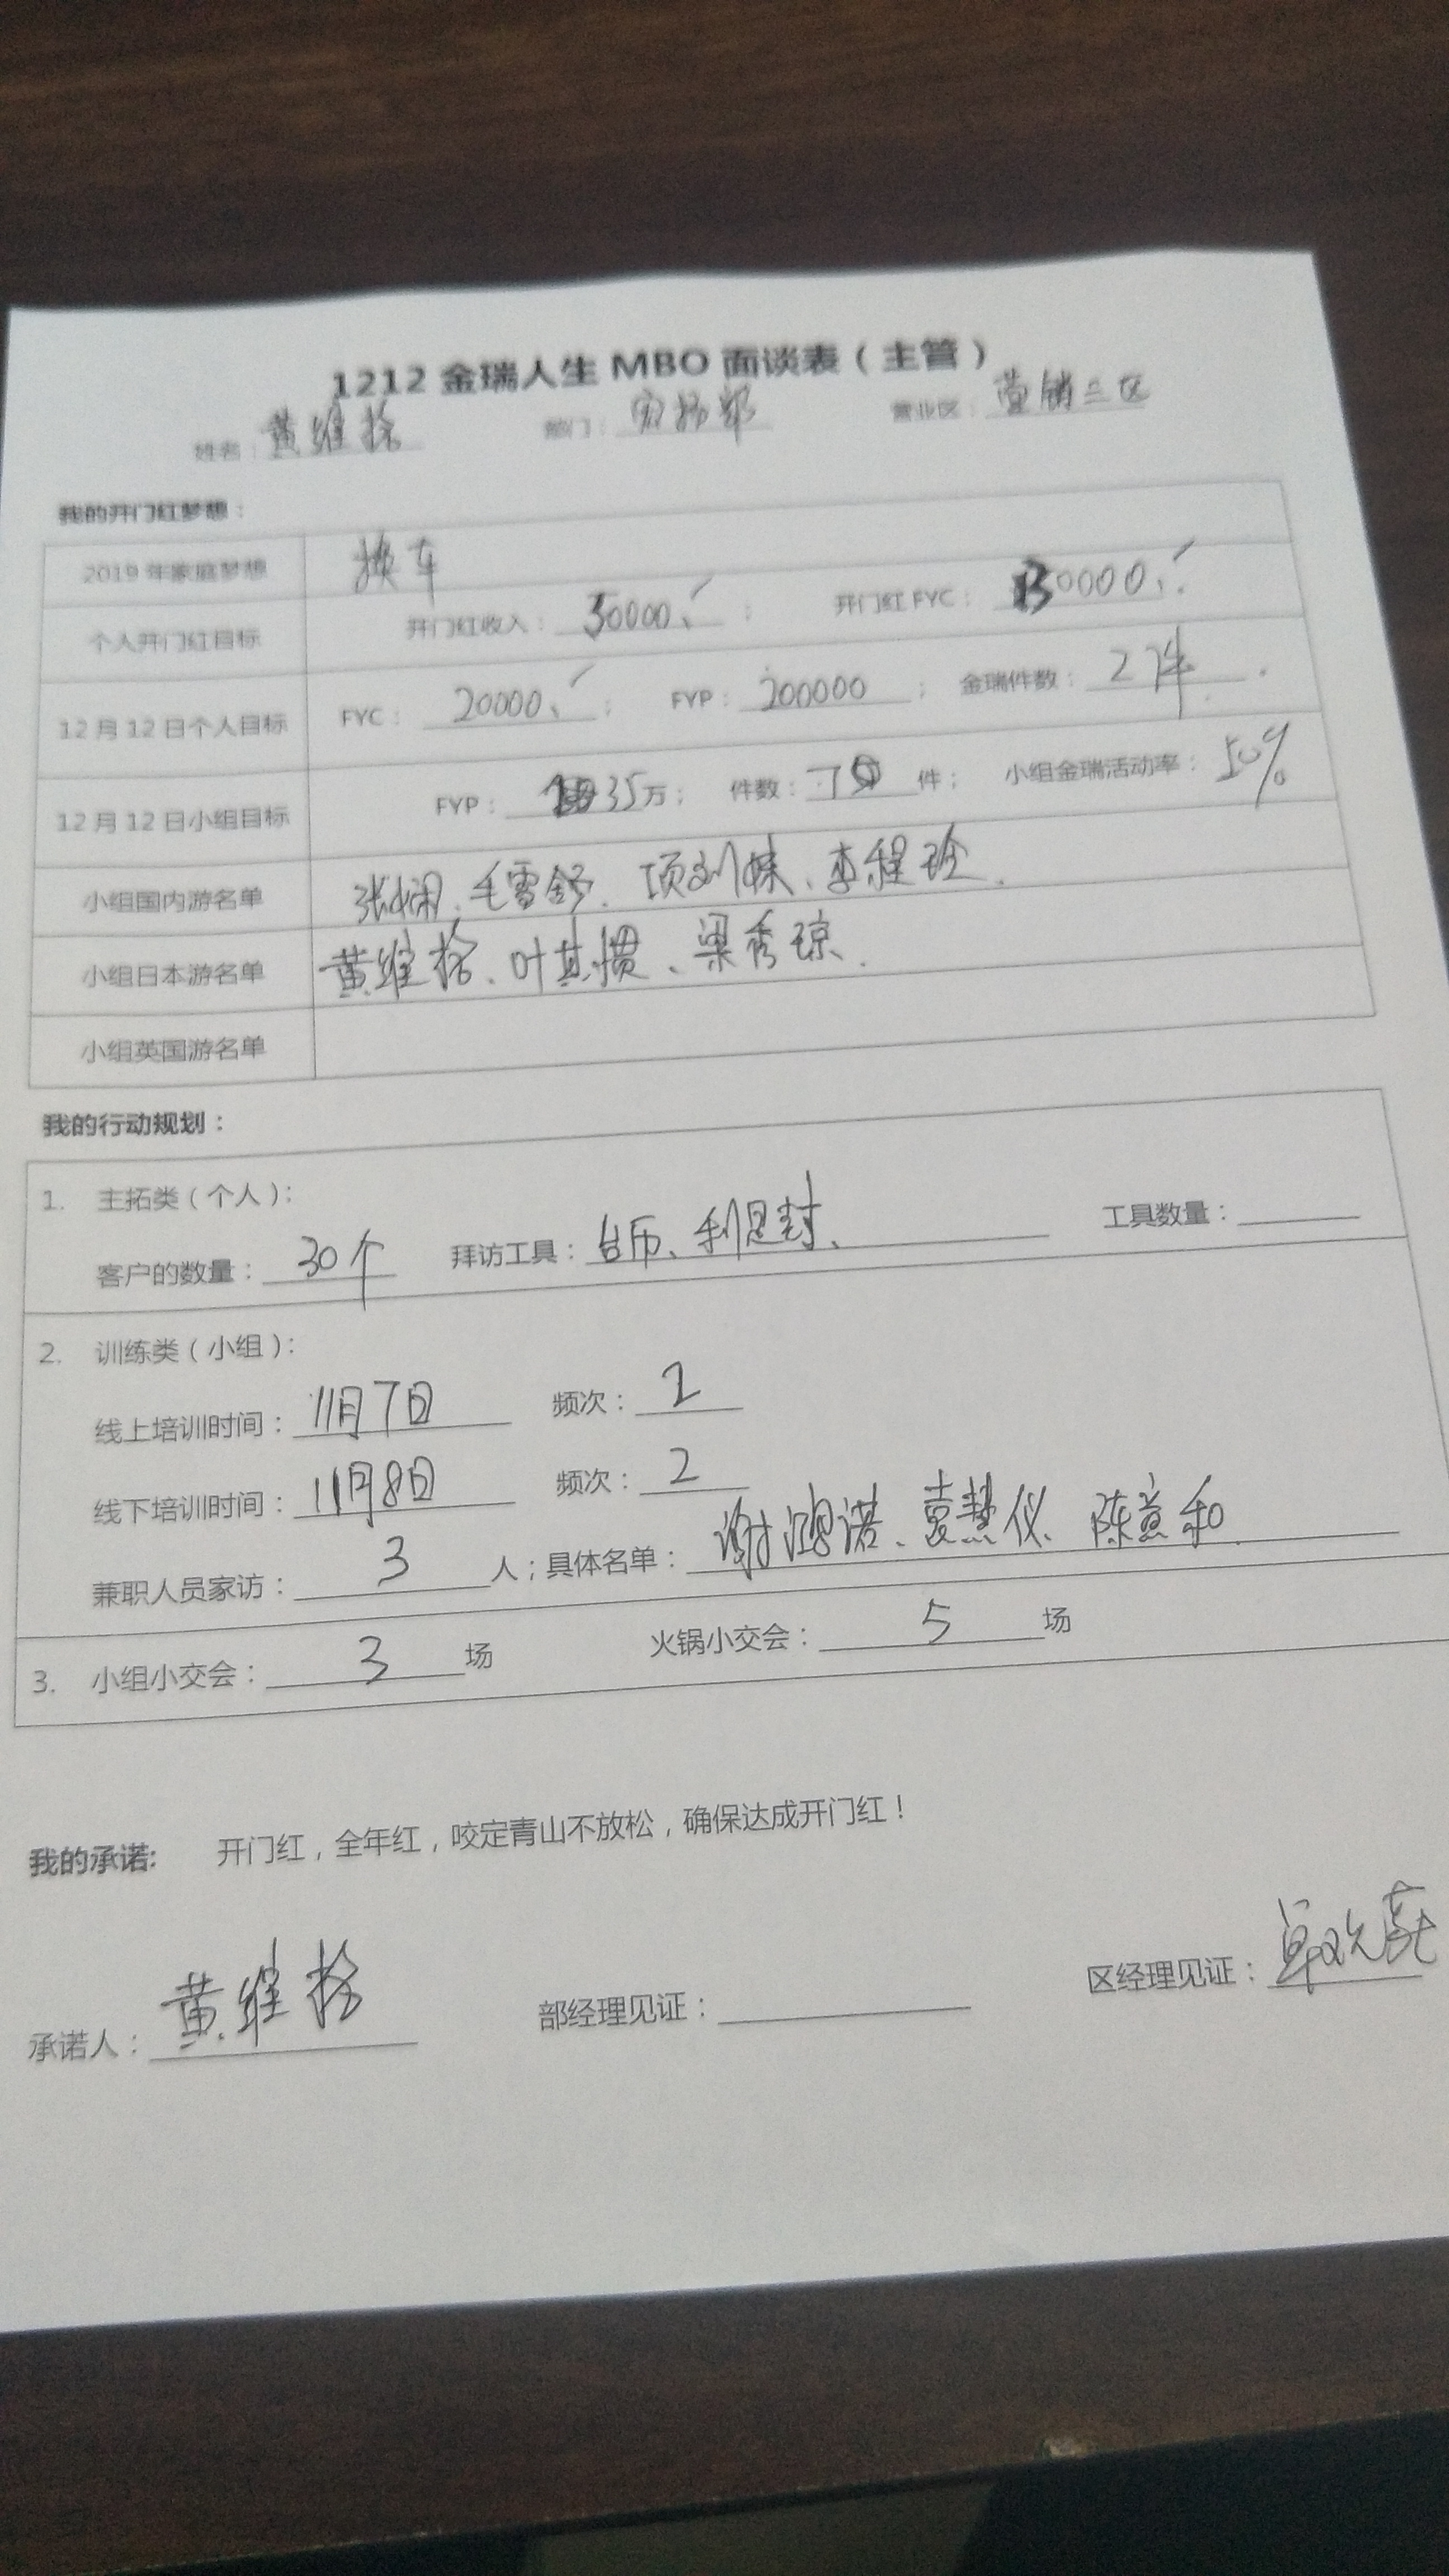 1212 金瑞人生 MBO 面谈表（主管）
姓名：黄维拴 部门：宏扬部 营业区：营销三区
我的开门红梦想：
2019 年家庭梦想 换车
个人开门红目标 开门红收入：50000 ； 开门红 FYC：30000
12 月 12 日个人目标 FYC：20000 ； FYP：200000 ； 金瑞件数：2件
12 月 12 日小组目标 FYP：35万； 件数： 件； 小组金瑞活动率：50%
小组国内游名单 张娴、毛雪舒、项刘妹、李程玲
小组日本游名单 黄维拴、叶其惯、梁秀琼
小组英国游名单
我的行动规划：
1. 主拓类（个人）：
客户的数量：30个 拜访工具：台历、利是封、 工具数量：
2. 训练类（小组）：
线上培训时间：11月7日 频次：2
线下培训时间：11月8日 频次：2
兼职人员家访：3人；具体名单：谢鸿诺、袁慧仪、陈意和
3. 小组小交会：3场 火锅小交会：5场
我的承诺: 开门红，全年红，咬定青山不放松，确保达成开门红！
承诺人：黄维拴 部经理见证： 区经理见证：